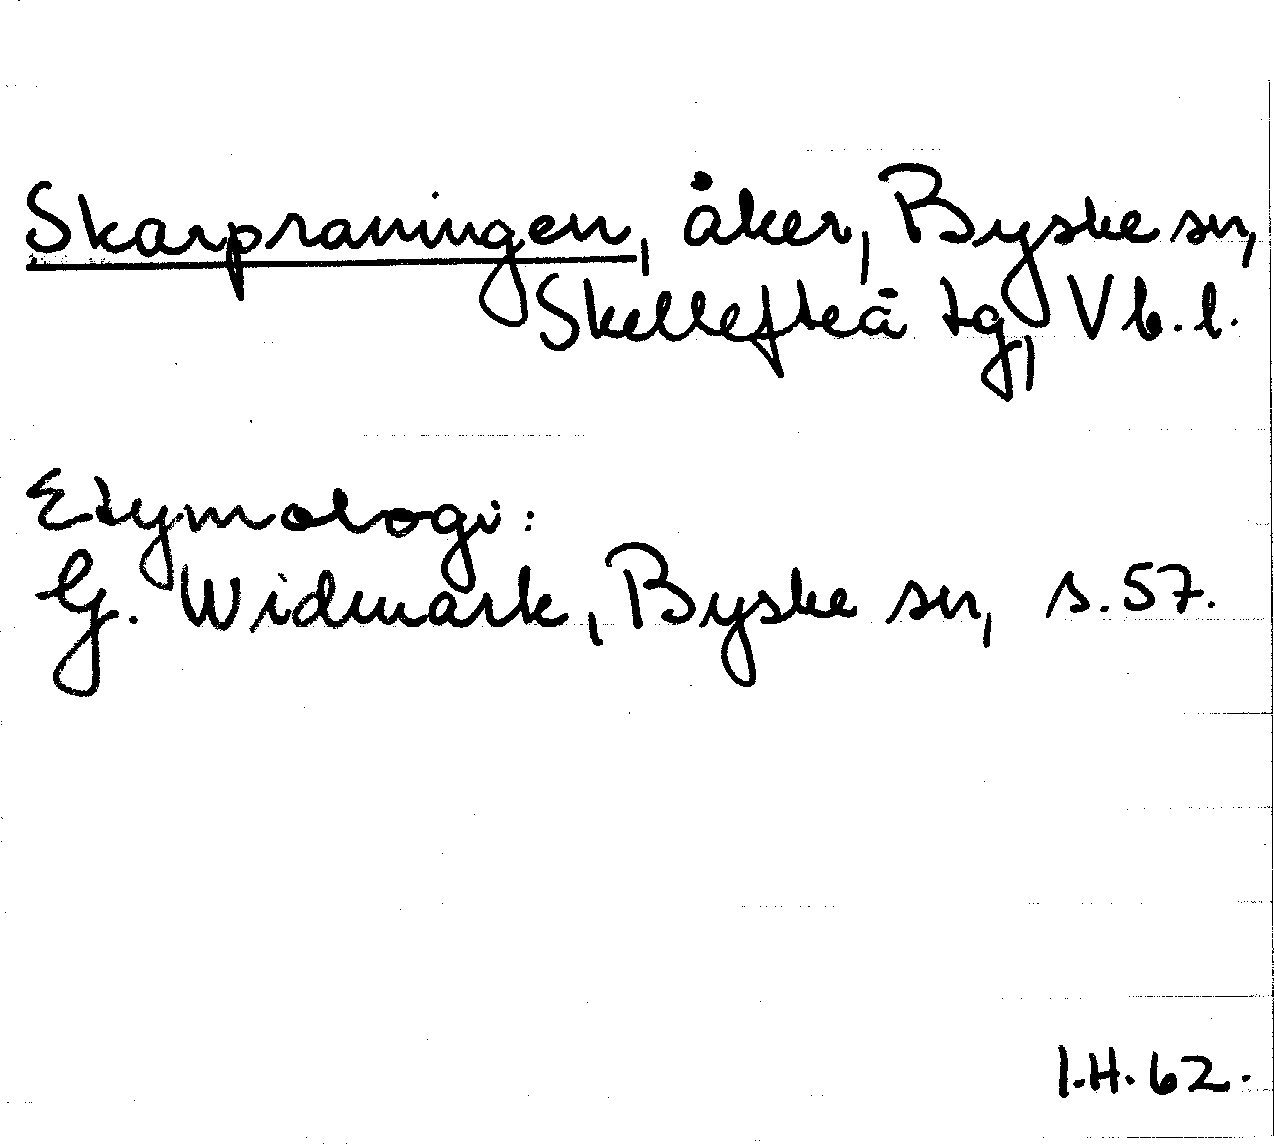 Skarpraningen, åker, Byske sn,
Skellefteå tg, Vb. l.
Etymologi:
G. Widmark, Byske sn, s. 57.
I.H. 62.